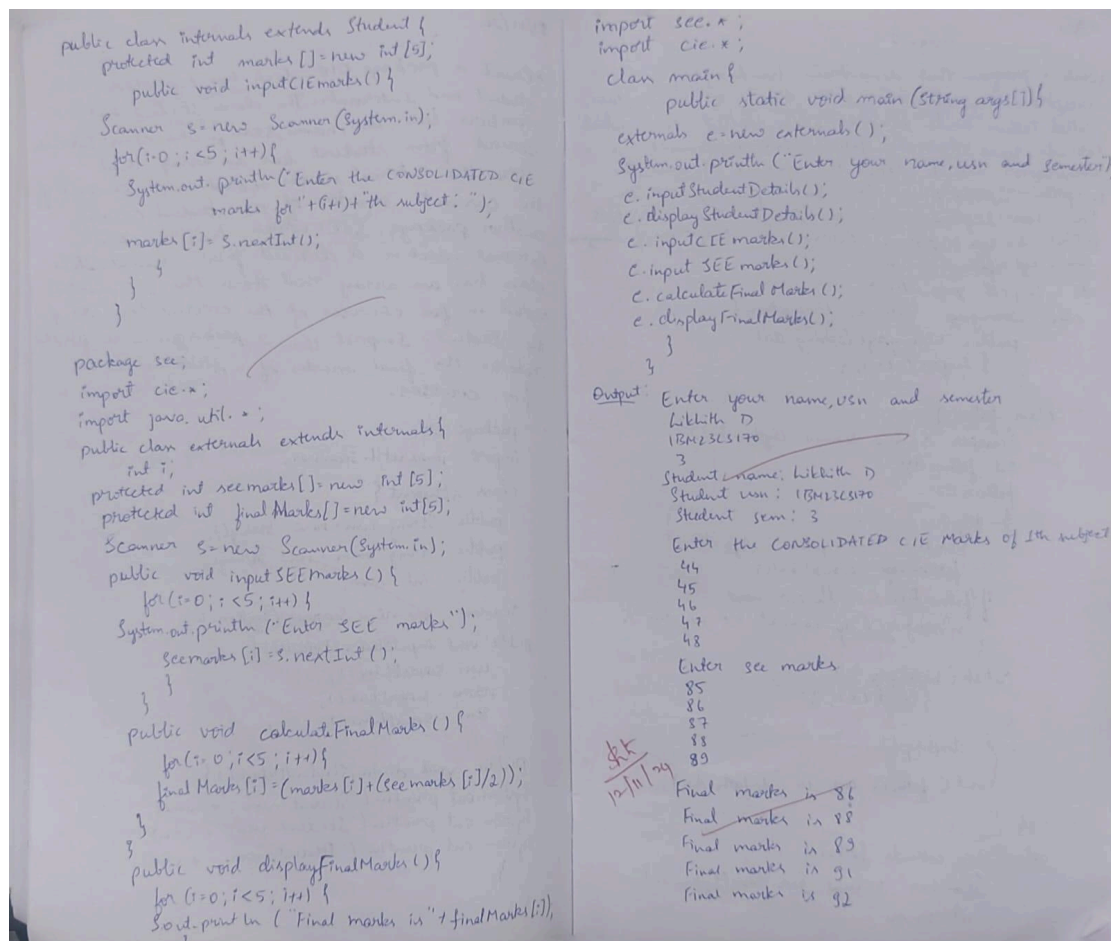 public class internals extends Student {
protected int marks []=new int [5];
public void inputCIEmarks() {
Scanner s=new Scanner(System.in);
for(i=0; i<5; i++){
System.out.println("Enter the CONSOLIDATED CIE
marks for "+(i+1)+"th subject: ");
marks[i]= s.nextInt();
}
}
}
package see;
import cie.*;
import java.util.*;
public class externals extends internals{
int i;
protected int seemarks[]=new int [5];
protected int finalMarks[]=new int[5];
Scanner s=new Scanner(System.in);
public void inputSEEmarks () {
for(i=0; i<5; i++) {
System.out.println ("Enter SEE marks");
seemarks [i]=s.nextInt ();
}
}
public void calculateFinalMarks () {
for(i=0; i<5; i++){
final Marks[i]=(marks[i]+(seemarks [i]/2));
}
}
public void displayFinalMarks (){
for (i=0; i<5; i++) {
S.out.println ("Final marks is "+finalMarks[i]);
}
import see.*;
import cie.*;
class main {
public static void main (String args[]){
externals e=new externals();
System.out.println ("Enter your name, usn and semester")
e.inputStudentDetails();
e.displayStudentDetails();
e.inputCIEmarks();
e.input SEEmarks();
e.calculateFinalMarks();
e.displayFinalMarks();
}
}
Output: Enter your name, usn and semester
Likhith D
1BM23CS170
3
Student name: Likhith D
Student usn: 1BM23CS170
Student sem: 3
Enter the CONSOLIDATED CIE Marks of 1th subject
44
45
46
47
48
Enter see marks
85
86
87
88
89
12/11/24
Final marks is 86
Final marks is 88
Final marks is 89
Final marks is 91
Final marks is 92